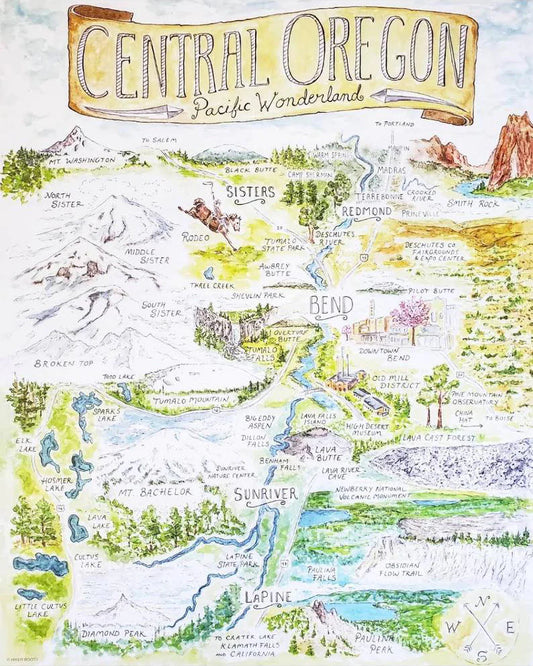 CENTRAL OREGON
Pacific Wonderland
TO SALEM
TO PORTLAND
MT. WASHINGTON
BLACK BUTTE
WARM SPRINGS
CAMP SHERMAN
MADRAS
NORTH
SISTER
SISTERS
TERREBONNE
CROOKED
RIVER
SMITH ROCK
REDMOND
PRINEVILLE
RODEO
DESCHUTES
RIVER
TUMALO
STATE PARK
DESCHUTES CO.
FAIRGROUNDS
& EXPO CENTER
MIDDLE
SISTER
AWBREY
BUTTE
THREE CREEK
SHEVLIN PARK
PILOT BUTTE
SOUTH
SISTER
BEND
OVERTURF
BUTTE
TUMALO
FALLS
DOWNTOWN
BEND
BROKEN TOP
TODD LAKE
OLD MILL
DISTRICT
TUMALO MOUNTAIN
PINE MOUNTAIN
OBSERVATORY
SPARKS
LAKE
CHINA
HAT
TO BOISE
BIG EDDY
ASPEN
LAVA FALLS
ISLAND
HIGH DESERT
MUSEUM
LAVA CAST FOREST
ELK
LAKE
DILLON
FALLS
LAVA
BUTTE
BENHAM
FALLS
SUNRIVER
NATURE CENTER
LAVA RIVER
CAVE
HOSMER
LAKE
MT. BACHELOR
SUNRIVER
NEWBERRY NATIONAL
VOLCANIC MONUMENT
LAVA
LAKE
CULTUS
LAKE
LAPINE
STATE PARK
PAULINA
FALLS
OBSIDIAN
FLOW TRAIL
LITTLE CULTUS
LAKE
LAPINE
DIAMOND PEAK
TO CRATER LAKE
KLAMATH FALLS
AND CALIFORNIA
PAULINA
PEAK
N
W E
S